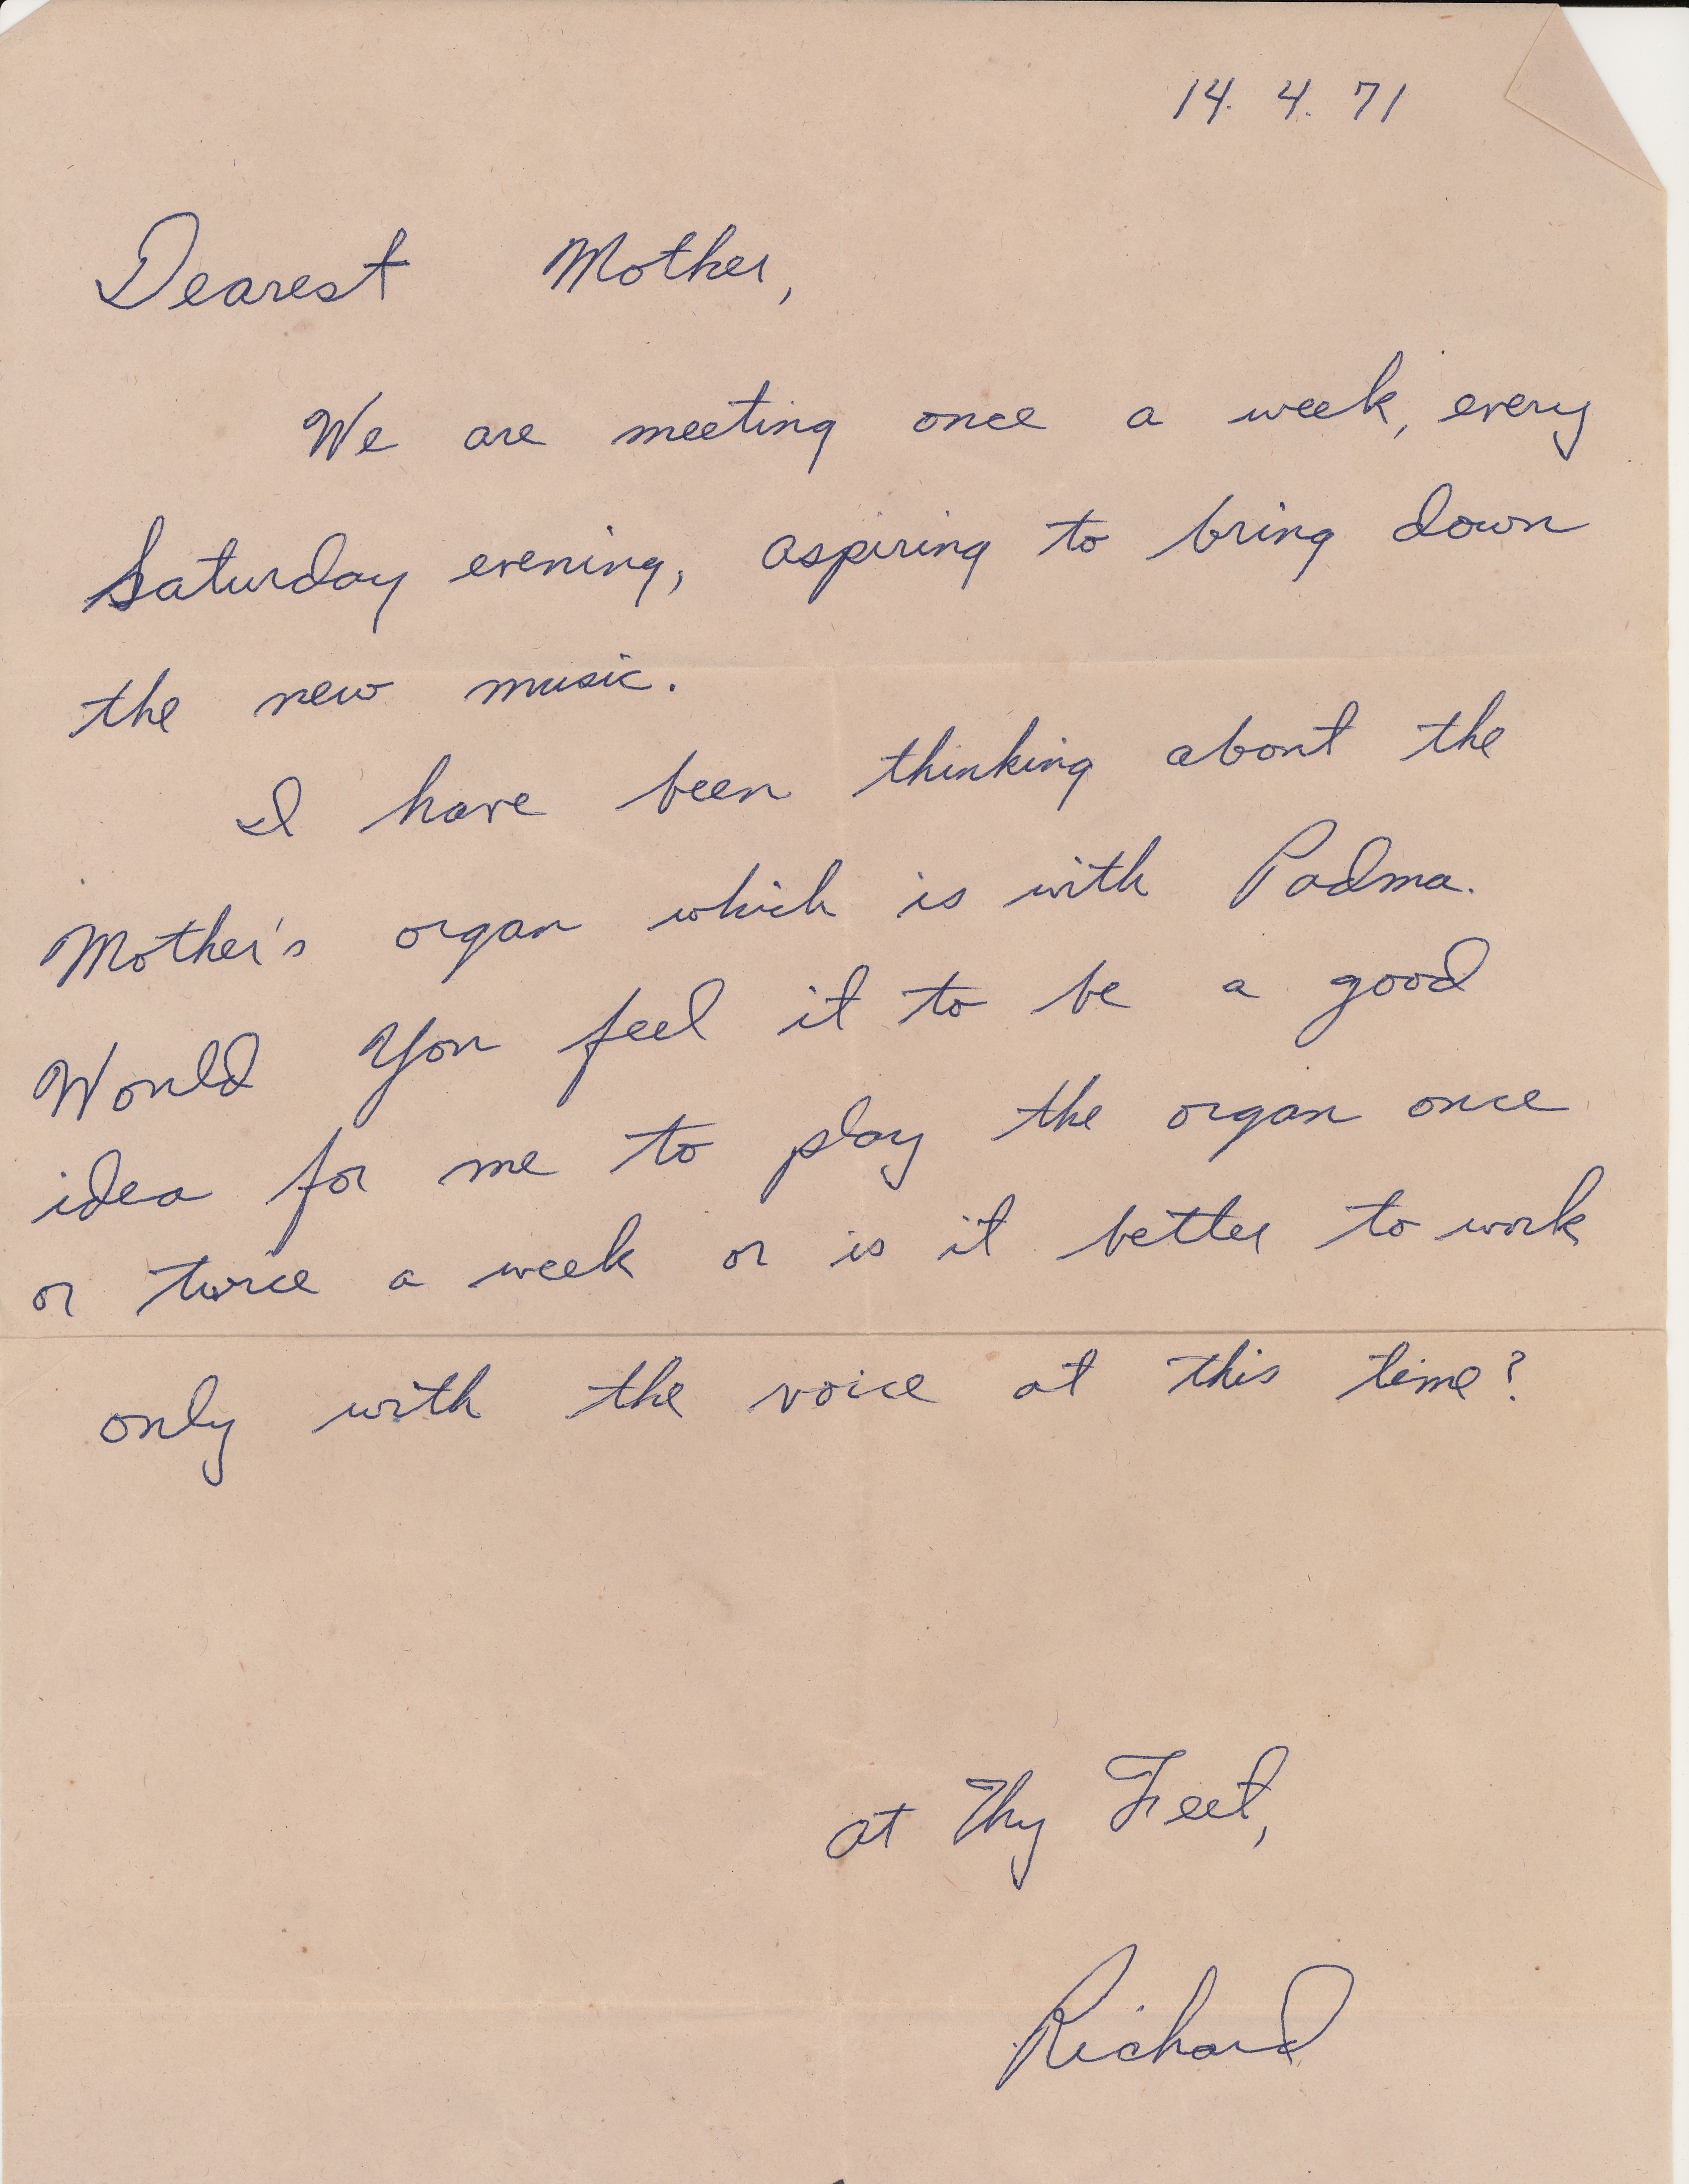 14. 4. 71
Dearest Mother,
We are meeting once a week, every
Saturday evening, aspiring to bring down
the new music.
I have been thinking about the
Mother's organ which is with Padma.
Would You feel it to be a good
idea for me to play the organ once
or twice a week or is it better to work
only with the voice at this time?
at Thy Feet,
Richard